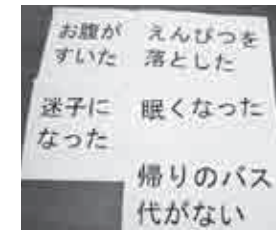 お腹が
すいた
えんぴつを
落とした
迷子に
なった
眠くなった
帰りのバス
代がない